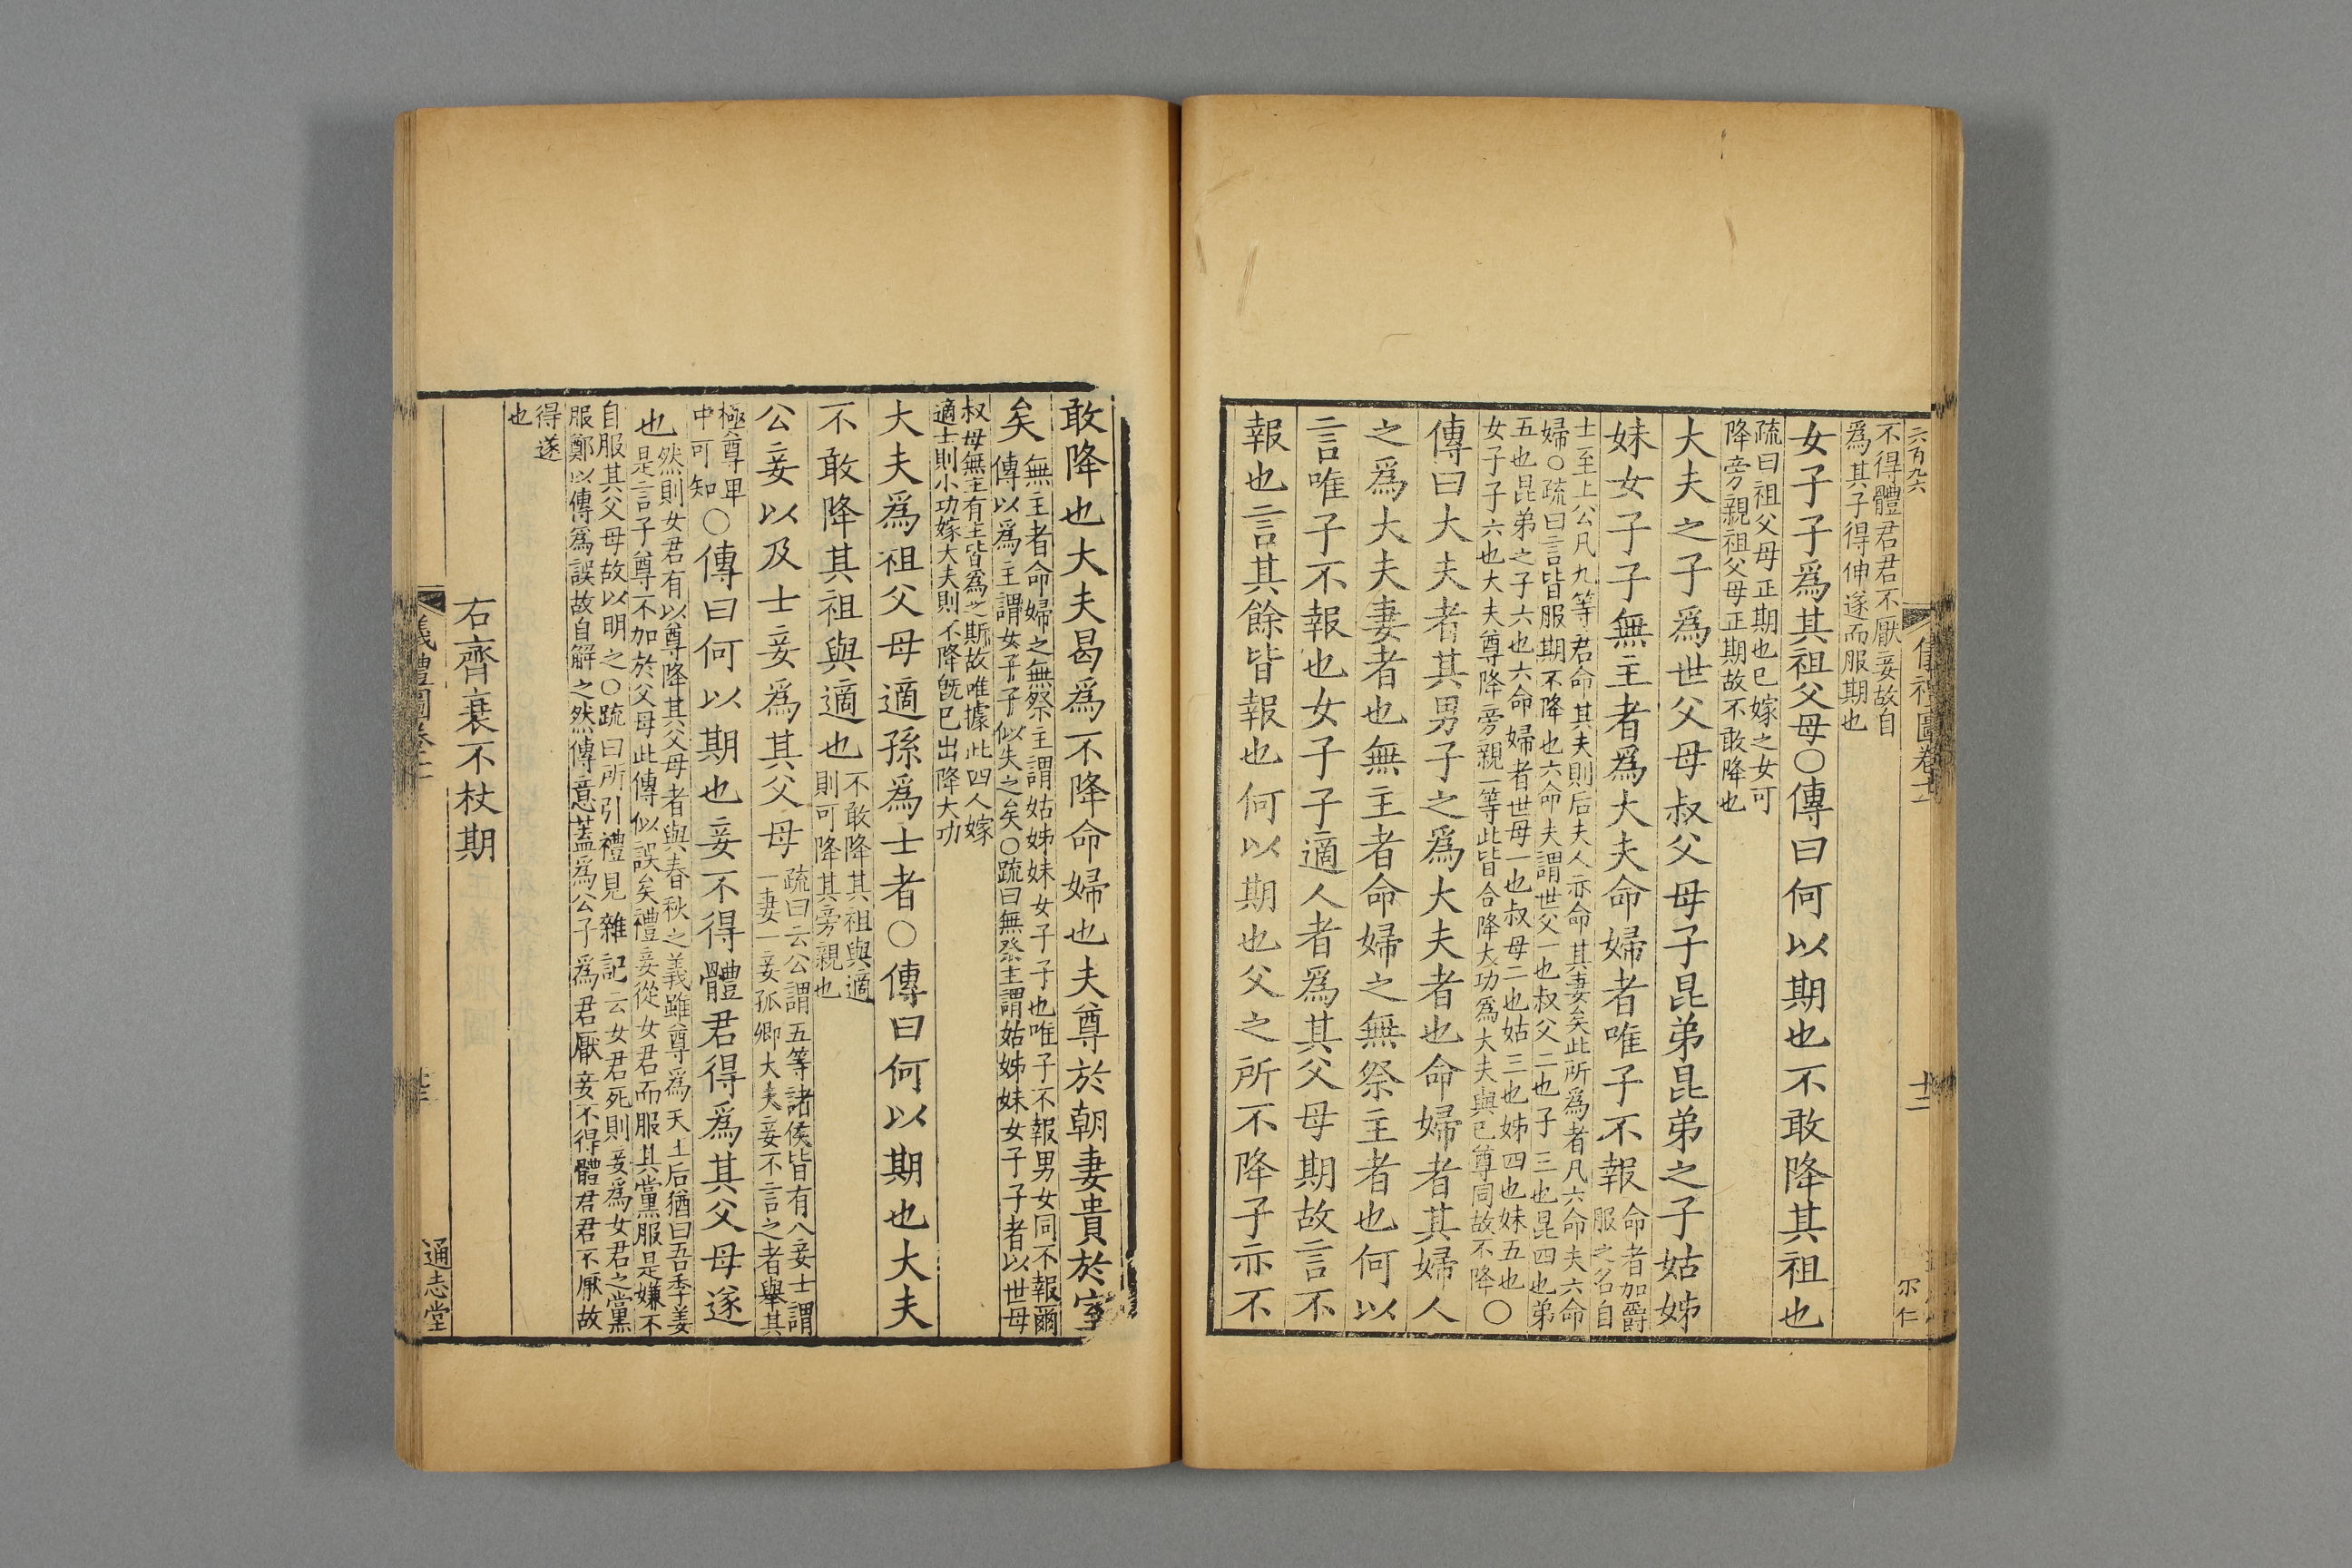 六百九六
儀禮圖卷十一
十二
尔仁
不得體君君不厭妾故自
爲其子得伸遂而服期也
女子子爲其祖父母○傳曰何以期也不敢降其祖也
疏曰祖父母正期也已嫁之女可
降旁親祖父母正期故不敢降也
大夫之子爲世父母叔父母子昆弟昆弟之子姑姊
妹女子子無主者爲大夫命婦者唯子不報
命者加爵
服之名自
士至上公凡九等君命其夫則后夫人亦命其妻矣此所爲者凡六命夫六命
婦○疏曰言皆服期不降也六命夫謂世父一也叔父二也子三也昆四也弟
五也昆弟之子六也六命婦者世母一也叔母二也姑三也姊四也妹五也
女子子六也大夫尊降旁親一等此皆合降大功爲大夫與己尊同故不降○
傳曰大夫者其男子之爲大夫者也命婦者其婦人
之爲大夫妻者也無主者命婦之無祭主者也何以
言唯子不報也女子子適人者爲其父母期故言不
報也言其餘皆報也何以期也父之所不降子亦不
敢降也大夫曷爲不降命婦也夫尊於朝妻貴於室
矣
無主者命婦之無祭主謂姑姊妹女子子也唯子不報男女同不報爾
傳以爲主謂女子子似失之矣○疏曰無祭主謂姑姊妹女子子者以世母
叔母無主有主皆爲之期故唯據此四人嫁
適士則小功嫁大夫則不降旣已出降大功
大夫爲祖父母適孫爲士者○傳曰何以期也大夫
不敢降其祖與適也
不敢降其祖與適
則可降其旁親也
公妾以及士妾爲其父母
疏曰云公謂五等諸侯皆有八妾士謂
一妻一妾孤卿大夫妾不言之者舉其
極尊卑
中可知
○傳曰何以期也妾不得體君得爲其父母遂
也
然則女君有以尊降其父母者與春秋之義雖尊爲天王后猶曰吾季姜
是言子尊不加於父母此傳似誤矣禮妾從女君而服其黨服是嫌不
自服其父母故以明之○疏曰所引禮見雜記云女君死則妾爲女君之黨
服鄭以傳爲誤故自解之然傳意蓋爲公子爲君厭妾不得體君君不厭故
得遂
也
右齊衰不杖期
儀禮圖卷十一
通志堂